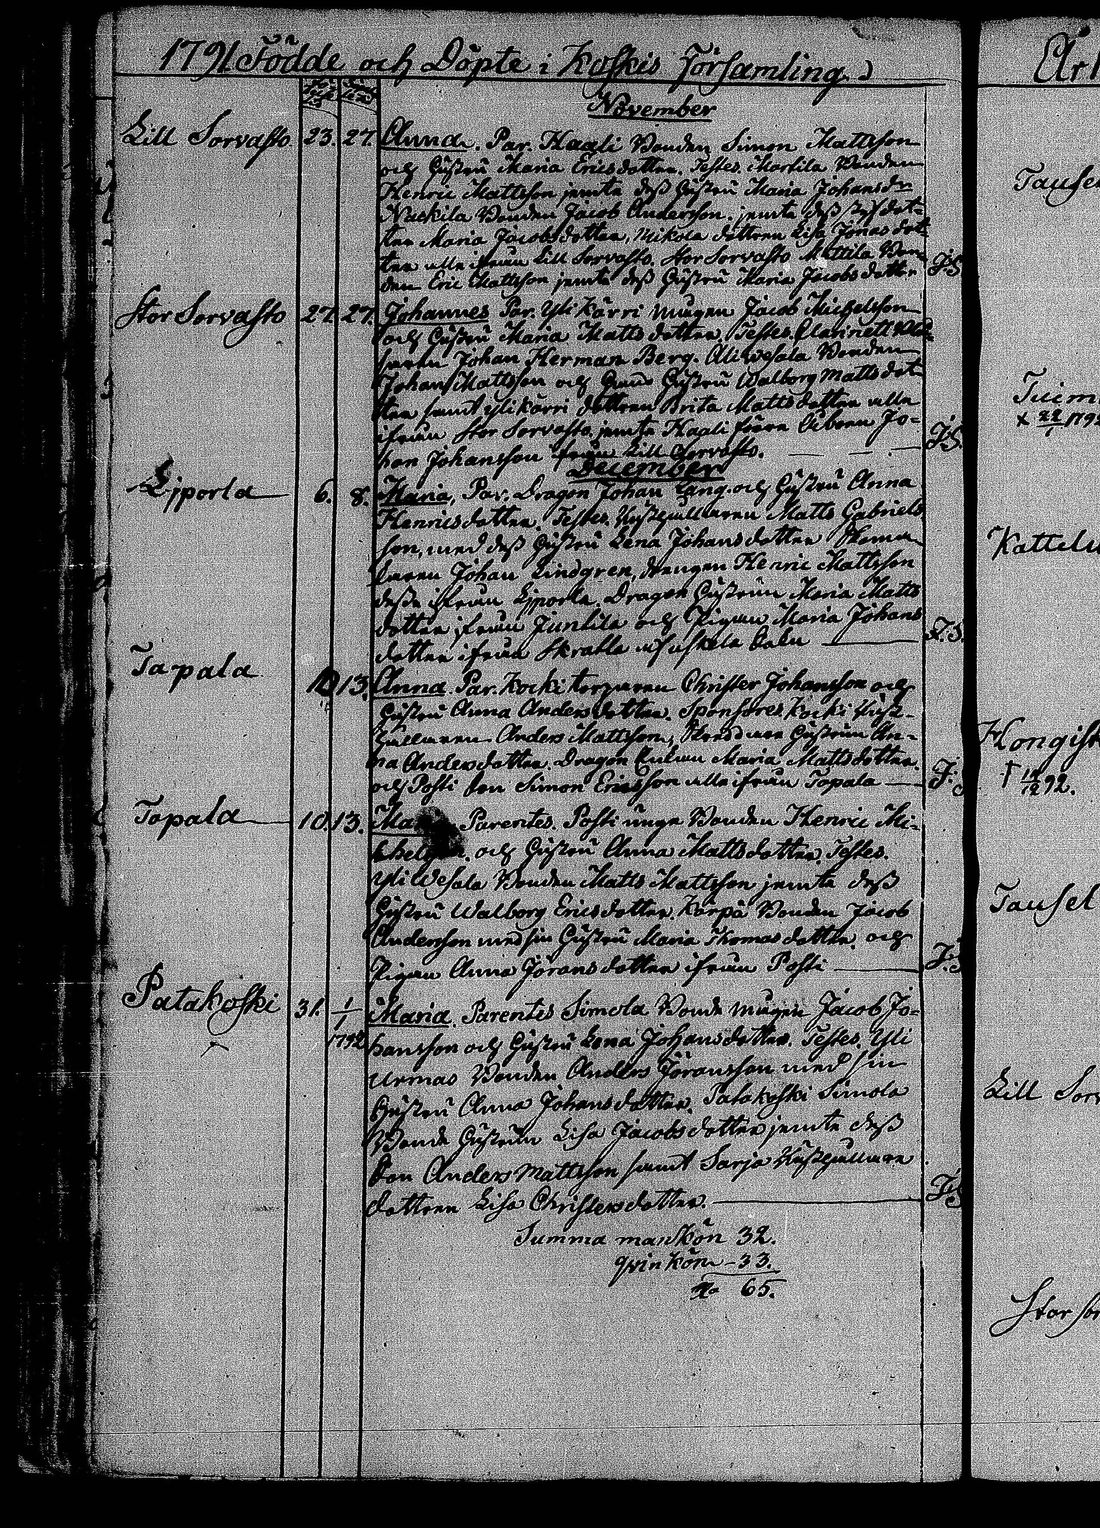 1791 Födde och Döpte i Koskis Församling
November
Lill Sorvasto 23. 27. Anna. Par. Haali Bonden Simon Mattsson
och Hustru Maria Ericsdotter. Testes. Martila Bonden
Henric Mattsson jemte dess Hustru Maria Johansdr
Nuckila Bonden Jacob Andersson jemte dess
ter Maria Jacobsdotter, Mikola dottren Lisa Jonas dot
ter alle ifrån Lill Sorvasto. Stor Sorvasto Mattila Bon-
den Eric Mattsson jemte dess Hustru Maria Jacobsdotter J.S.
Stor Sorvasto 27. 27. Johannes Par. Yli Kärri mågen Jacob Michelsson
och Hustru Maria Mattsdotter, Testes. Clarinett
Johan Herman Berg. Bonden
Johan Mattsson och Hustru Walborg Mattsdot
ter samt Ylikärri dottren Brita Mattsdotter alle
ifrån Stor Sorvasto, jemte Haali Jo-
han Johansson från Lill Sorvasto. J.S.
December
Liporla 6. 8. Maria, Par. Dragon Johan Lang och Hustru Anna
Henricsdotter. Testes. Matts Gabriels
son, med dess Hustru Lena Johansdotter
Johan Lindgren, drengen Henric Mattsson
desse ifrån Liporla. Dragon Hustrun Maria Matts
dotter ifrån Juntila och Pigan Maria Johans
dotter ifrån J.S.
Tapala 10 13. Anna. Par. Kocki torparen Christer Johansson och
Hustru Anna Andersdotter. Sponsores. Kocki
Anders Mattsson, Hustrun An-
na Andersdotter. Dragon Maria Mattsdotter.
och Posti Son Simon Ericsson alle ifrån Tapala J.S.
Tapala 10. 13. Ma Parentes. Posti unge Bonden Henric Mi-
och Hustru Anna Mattsdotter. Testes.
Yli Wesala Bonden Matts Mattsson jemte dess
Hustru Walborg Ericsdotter, Kärpä Bonden Jacob
Andersson med sin Hustru Maria Thomasdotter och
Pigan Anna Joransdotter ifrån Posti J.S.
Patakoski 31. 1/1 Maria. Parentes Simola Bonde mågen Jacob Jo-
1792 hansson och Hustru Lena Johansdotter. Testes. Yli
Urmas Bonden Anders Joransson med sin
Hustru Anna Johansdotter. Patakoski Simola
Bonde Hustrun Lisa Jacobsdotter jemte dess
Son Anders Mattsson samt Sarja
dottren Lisa Christersdotter. J.S.
Summa mankön 32.
qvinkön - 33.
65.
Tausel
Kattelu
Hongist
† 12/12 92.
Tausel
Lill Sorv
Stor Sor